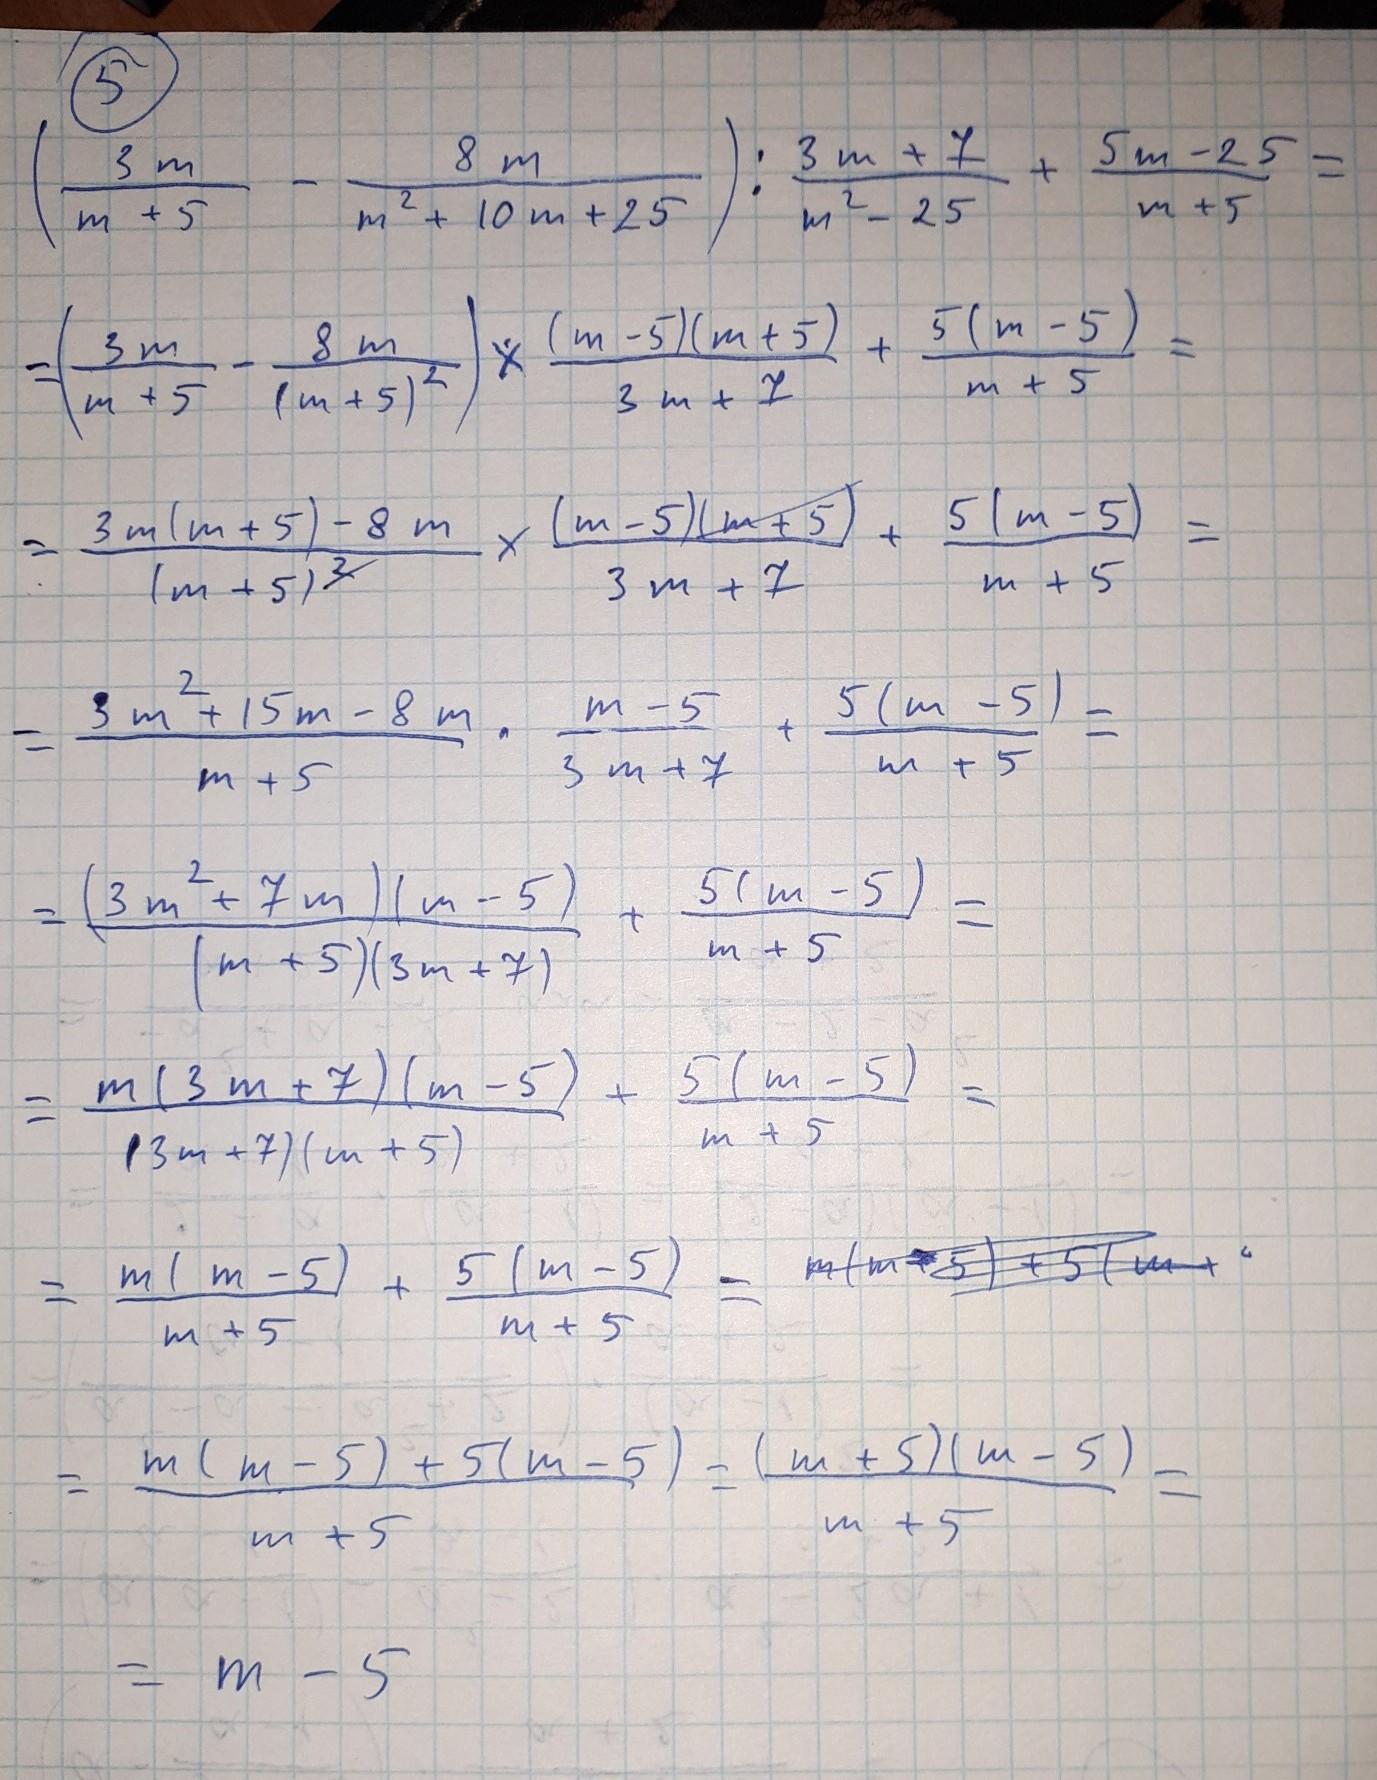 5
( 3m / (m + 5) - 8m / (m² + 10m + 25) ) : (3m + 7) / (m² - 25) + (5m - 25) / (m + 5) =
= ( 3m / (m + 5) - 8m / (m + 5)² ) × (m - 5)(m + 5) / (3m + 7) + 5(m - 5) / (m + 5) =
= (3m(m + 5) - 8m) / (m + 5)² × (m - 5)(m + 5) / (3m + 7) + 5(m - 5) / (m + 5) =
= (3m² + 15m - 8m) / (m + 5) · (m - 5) / (3m + 7) + 5(m - 5) / (m + 5) =
= (3m² + 7m)(m - 5) / (m + 5)(3m + 7) + 5(m - 5) / (m + 5) =
= m(3m + 7)(m - 5) / (3m + 7)(m + 5) + 5(m - 5) / (m + 5) =
= m(m - 5) / (m + 5) + 5(m - 5) / (m + 5) =
= (m(m - 5) + 5(m - 5)) / (m + 5) = (m + 5)(m - 5) / (m + 5) =
= m - 5